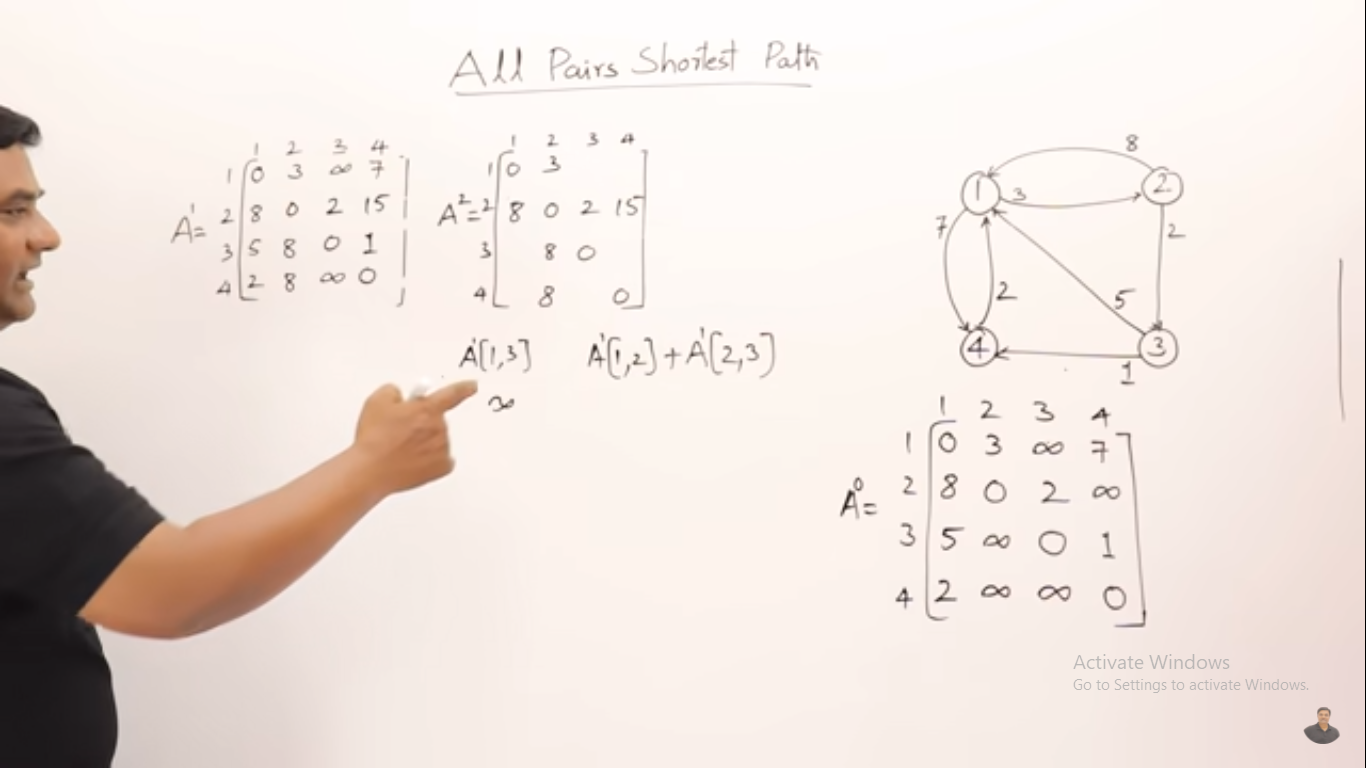 All Pairs Shortest Path
1 2 3 4
1 0 3 ∞ 7
A¹= 2 8 0 2 15
3 5 8 0 1
4 2 8 ∞ 0
1 2 3 4
1 0 3
A²= 2 8 0 2 15
3 8 0
4 8 0
A¹[1,3] A¹[1,2] + A¹[2,3]
∞
8
1 3 2
7 2
2 5
4 3
1
1 2 3 4
1 0 3 ∞ 7
A⁰= 2 8 0 2 ∞
3 5 ∞ 0 1
4 2 ∞ ∞ 0
Activate Windows
Go to Settings to activate Windows.